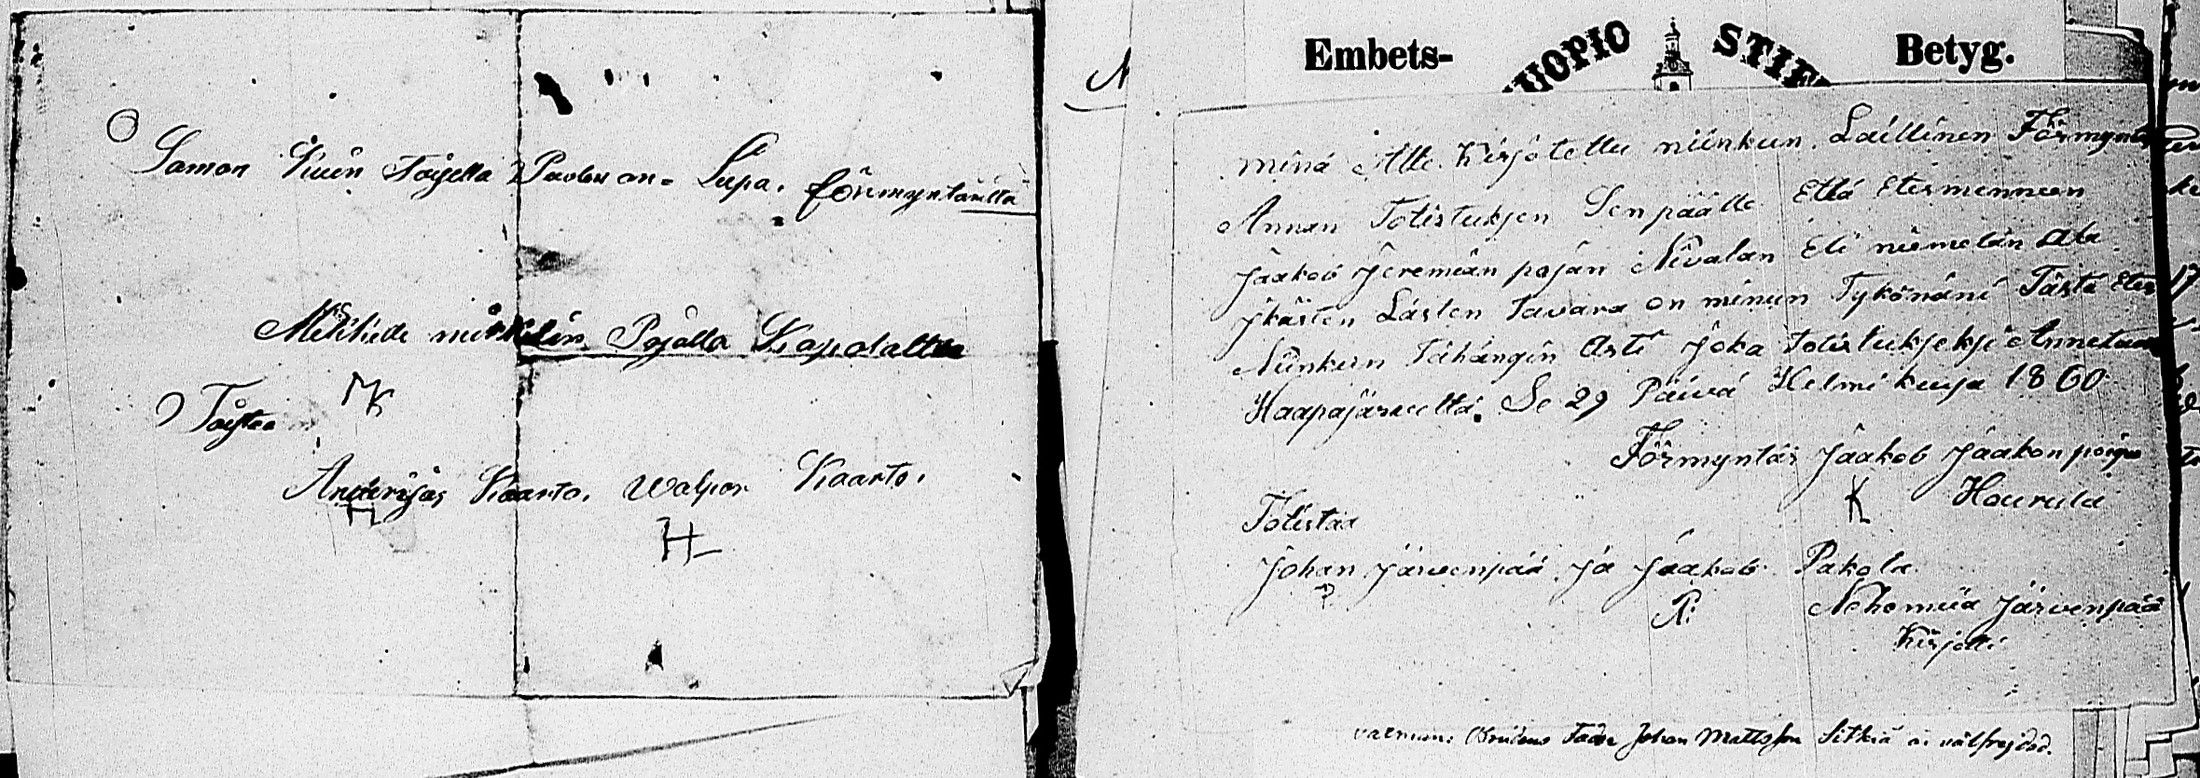 Saman Kuin Toisella Puolen on Lupa. förmyntäriltä
Mikkielin Pojalla
MK
Toistaa
Anderijas Kaarto. Walpor Kaarto.
H H
N
Embets- UOPIO STIF Betyg.
minä Alle Kirjotettu niinkun Laillinen Förmyntär
Annan Totistuksen Sen päälle Että Etesmenneen
Jaakob Jeremian pojan Nivalan Eli niemelän Ala
jkästen Lästen tavara on minun Tykönäni Tästä Etes
Niinkun Tähängin Asti Joka totistukseksi Annetaan
Haapajärveltä. Se 29 Päivä Helmi kuusa 1860
Förmyntär Jaakob Jaakon poijca
K Haurula
Totistaa
Johan Järvenpää Ja Jaakob Pakola
P P. Nehemiia Järvenpää
Kirjotti
Fader Johan Mattsson Sitkiä är välfrejdad.